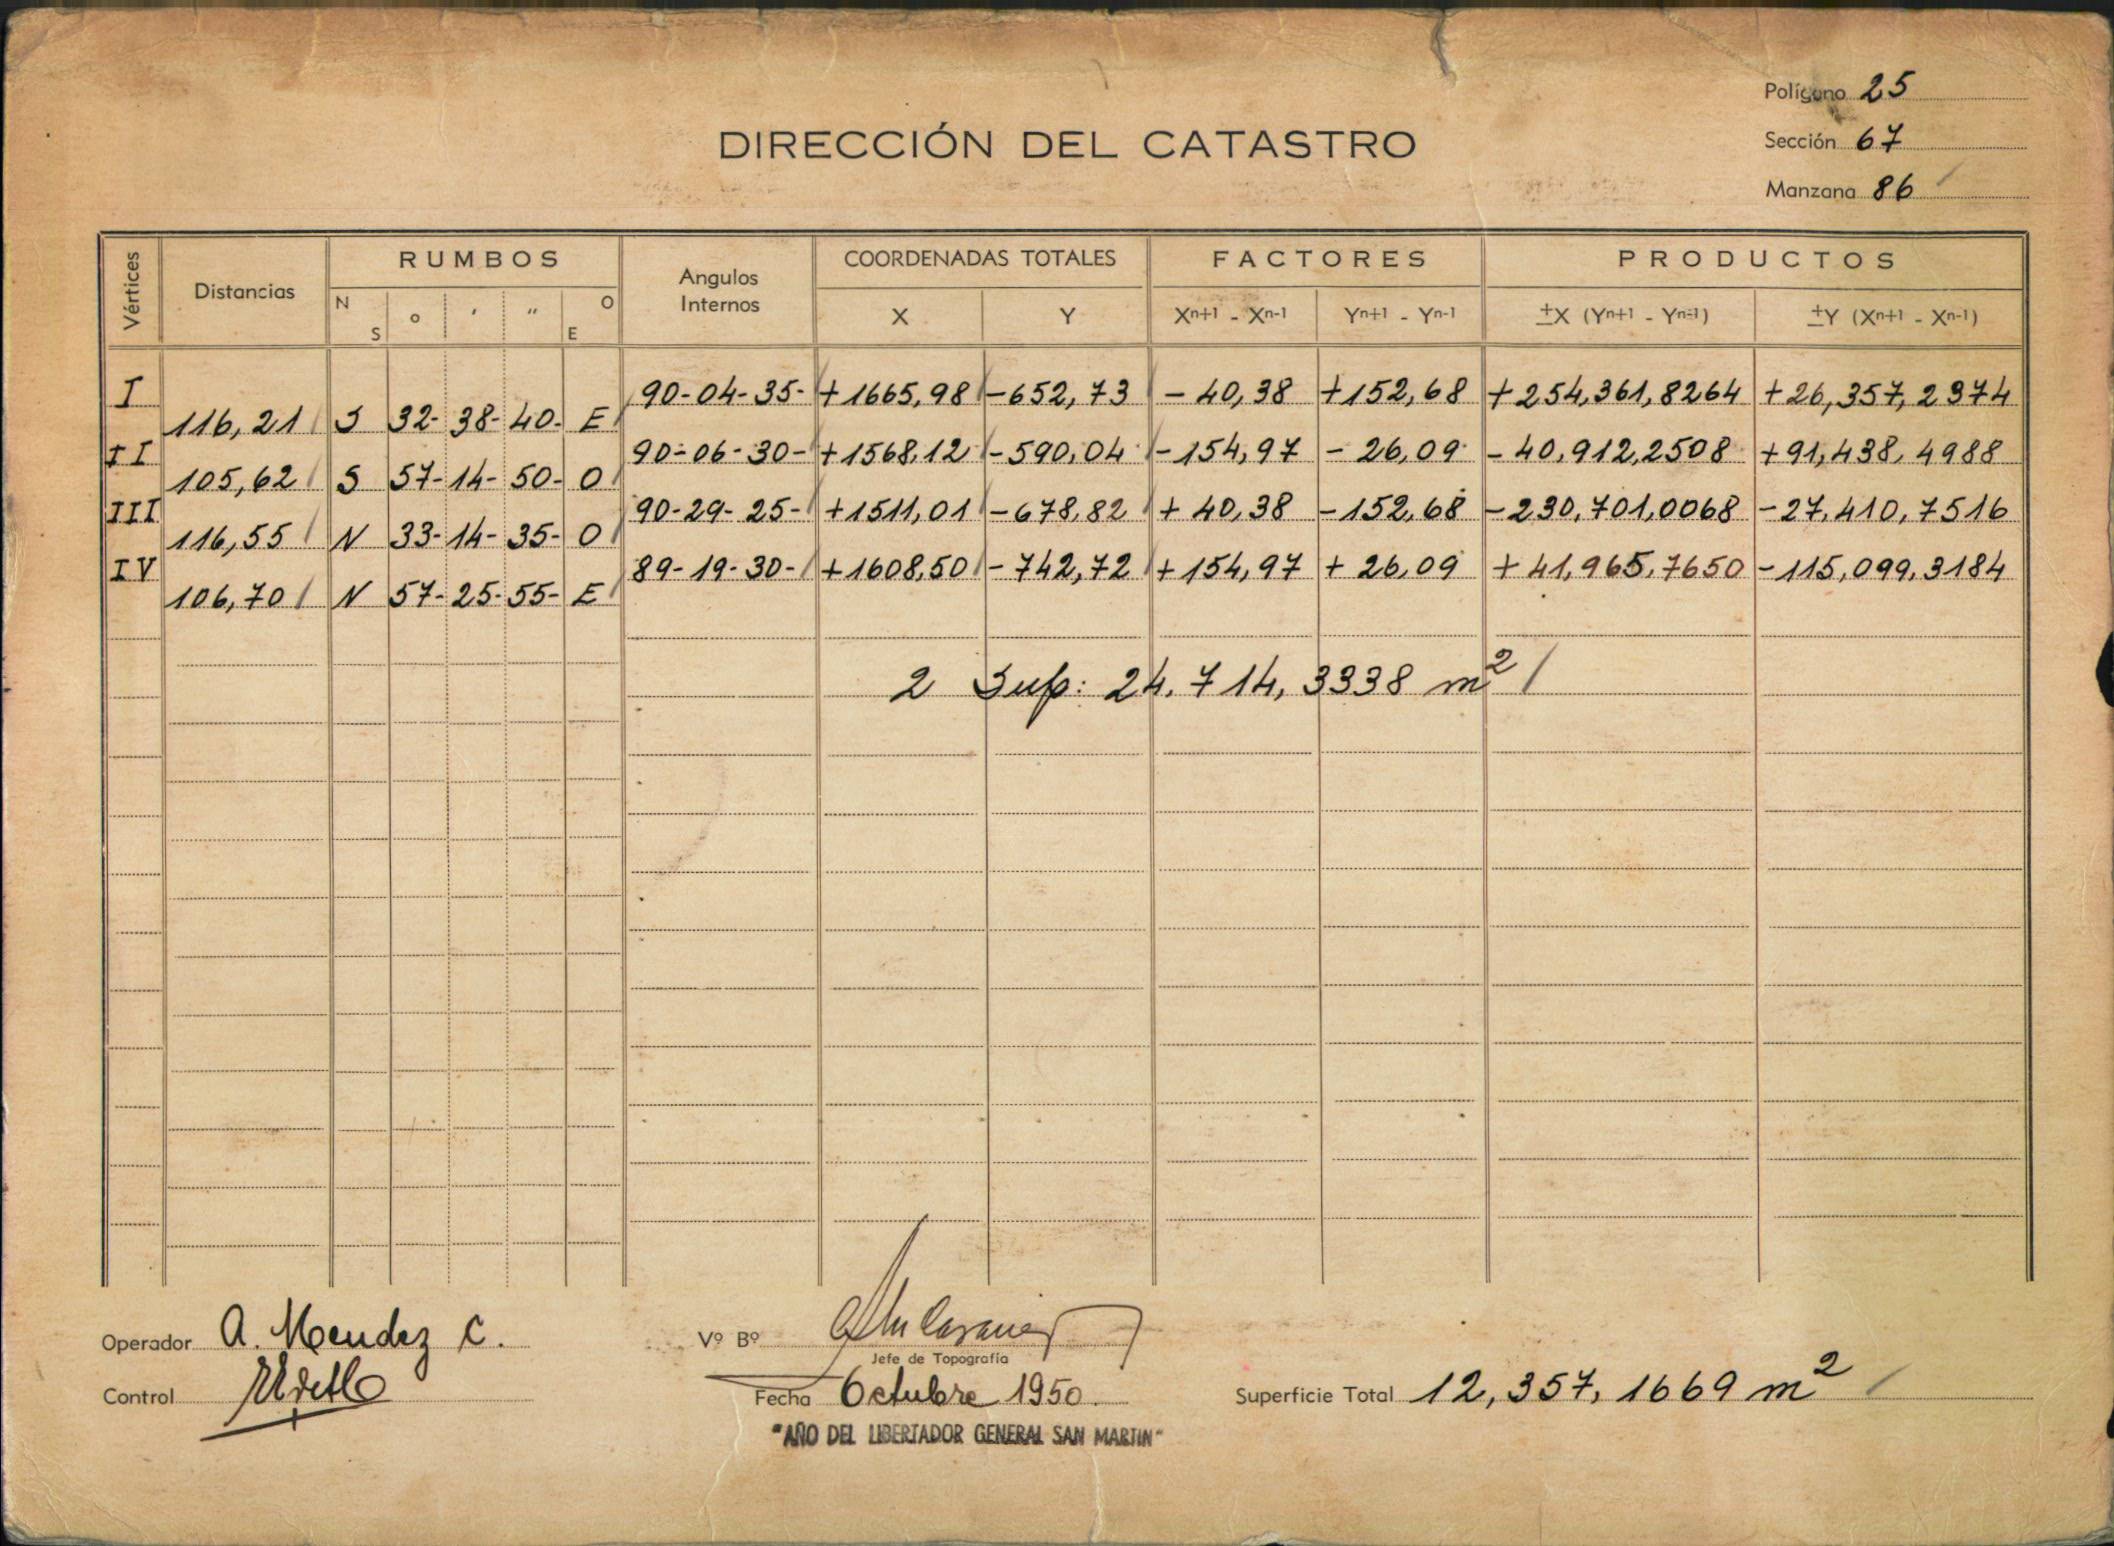 Polígono 25
DIRECCIÓN DEL CATASTRO
Sección 67
Manzana 86
Vértices Distancias RUMBOS Angulos Internos COORDENADAS TOTALES FACTORES PRODUCTOS
N S ° ' " O E X Y Xn+1 - Xn-1 Yn+1 - Yn-1 ±X (Yn+1 - Yn-1) ±Y (Xn+1 - Xn-1)
I 90-04-35- +1665,98 -652,73 -40,38 +152,68 +254,361,8264 +26,357,2374
116,21 S 32- 38- 40- E
II 90-06-30- +1568,12 -590,04 -154,97 -26,09 -40,912,2508 +91,438,4988
105,62 S 57- 14- 50- O
III 90-29-25- +1511,01 -678,82 +40,38 -152,68 -230,701,0068 -27,410,7516
116,55 N 33- 14- 35- O
IV 89-19-30- +1608,50 -742,72 +154,97 +26,09 +41,965,7650 -115,099,3184
106,70 N 57- 25- 55- E
2 Sup: 24.714,3338 m²
Operador A. Mendez C.
Vº Bº
Jefe de Topografía
Control
Fecha Octubre 1950.
Superficie Total 12,357,1669 m²
"AÑO DEL LIBERTADOR GENERAL SAN MARTIN"